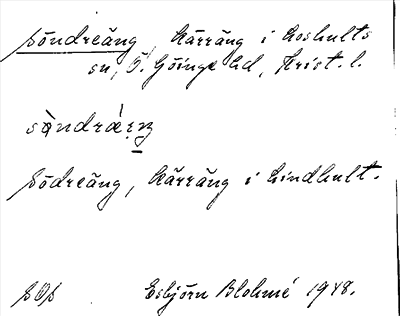 söndreäng, kärräng i Loshults
sn, Ö. Göinge hd, Krist. l.
sòndrä́ŋ
södreäng, kärräng i Lindhult.
sOs Esbjörn Blohmé 1948.